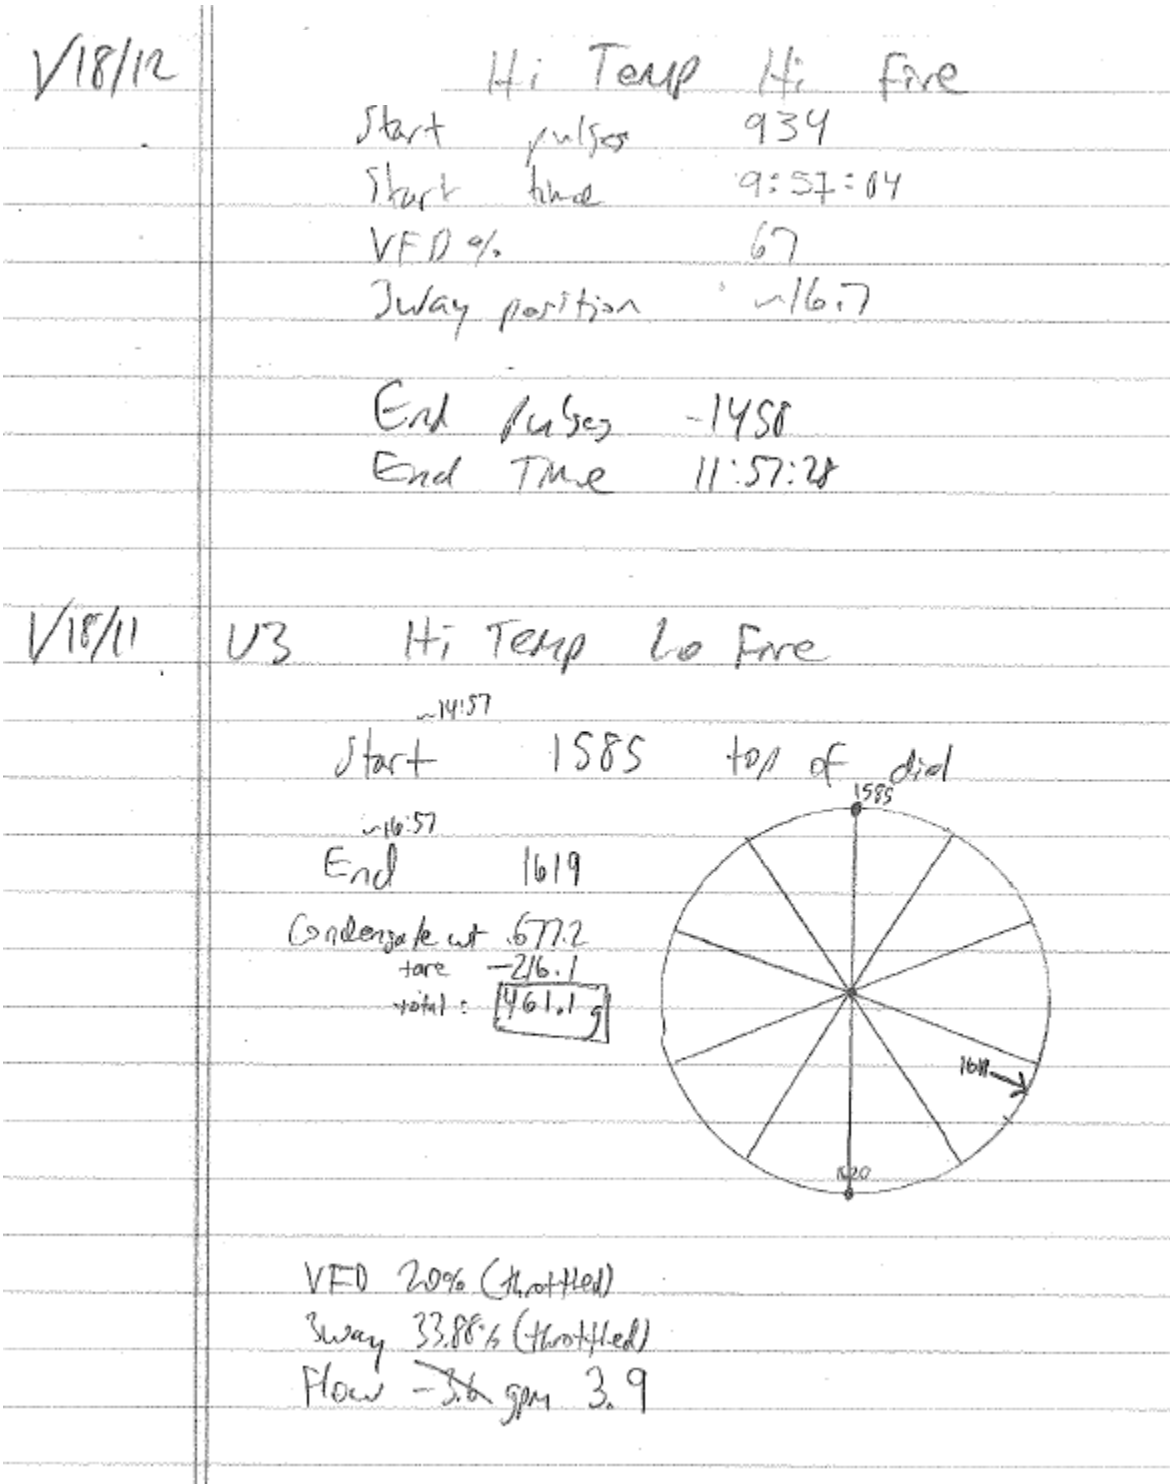 1/18/12 Hi Temp Hi Fire
Start pulses 934
Start time 9:57:04
VFD % 67
3way position ~16.7
End pulses -1458
End Time 11:57:28
1/18/11 U3 Hi Temp Lo Fire
~14:57
Start 1585 top of dial
1585
~16:57
End 1619
Condensate wt 677.2
tare -216.1
total: 461.1 g
1619
1620
VFD 20% (throttled)
3way 33.88% (throttled)
Flow -3.6 gpm 3.9